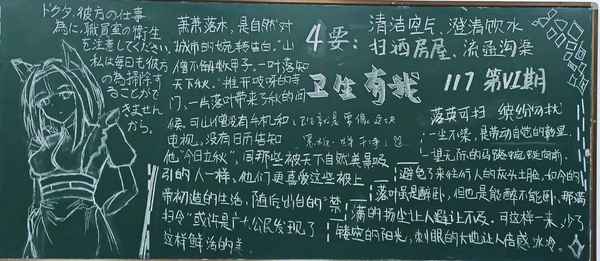 ドクタ、彼方の仕事
為に、職員室の衛生
を注意してください、
私は毎日も彼方
の為掃除す
ることができ
きません
から。
萧萧落木,是自然对
城市的
僧不解数甲子,一叶落知
天下秋。"推开吱呀的寺
门,一片落叶带来了秋的问
候,可山僧没有手机和
电视,没有日历告知
他"今日立秋"。同那些被天下自然美景吸
引的人一样,他们更喜爱这些披上
带初造的生活,随后出台的"禁
扫令"或许是广大公民发现了
这样鲜活的美
4要:
清洁空气、澄清饮水
扫洒房屋、流通沟渠
卫生有我
117 第VI期
落英可扫 缤纷可扰
一尘不染,是劳动自觉的勤里
一望无际的马路蜿蜒向前,
避免了来往行人的灰头土脸,如今的
落叶虽是醉卧,但也是能醉不能卧,那满
满的扬尘让人避让不及,可这样一来,少了
镂空的阳光,刺眼的大地让人倍感冰冷。